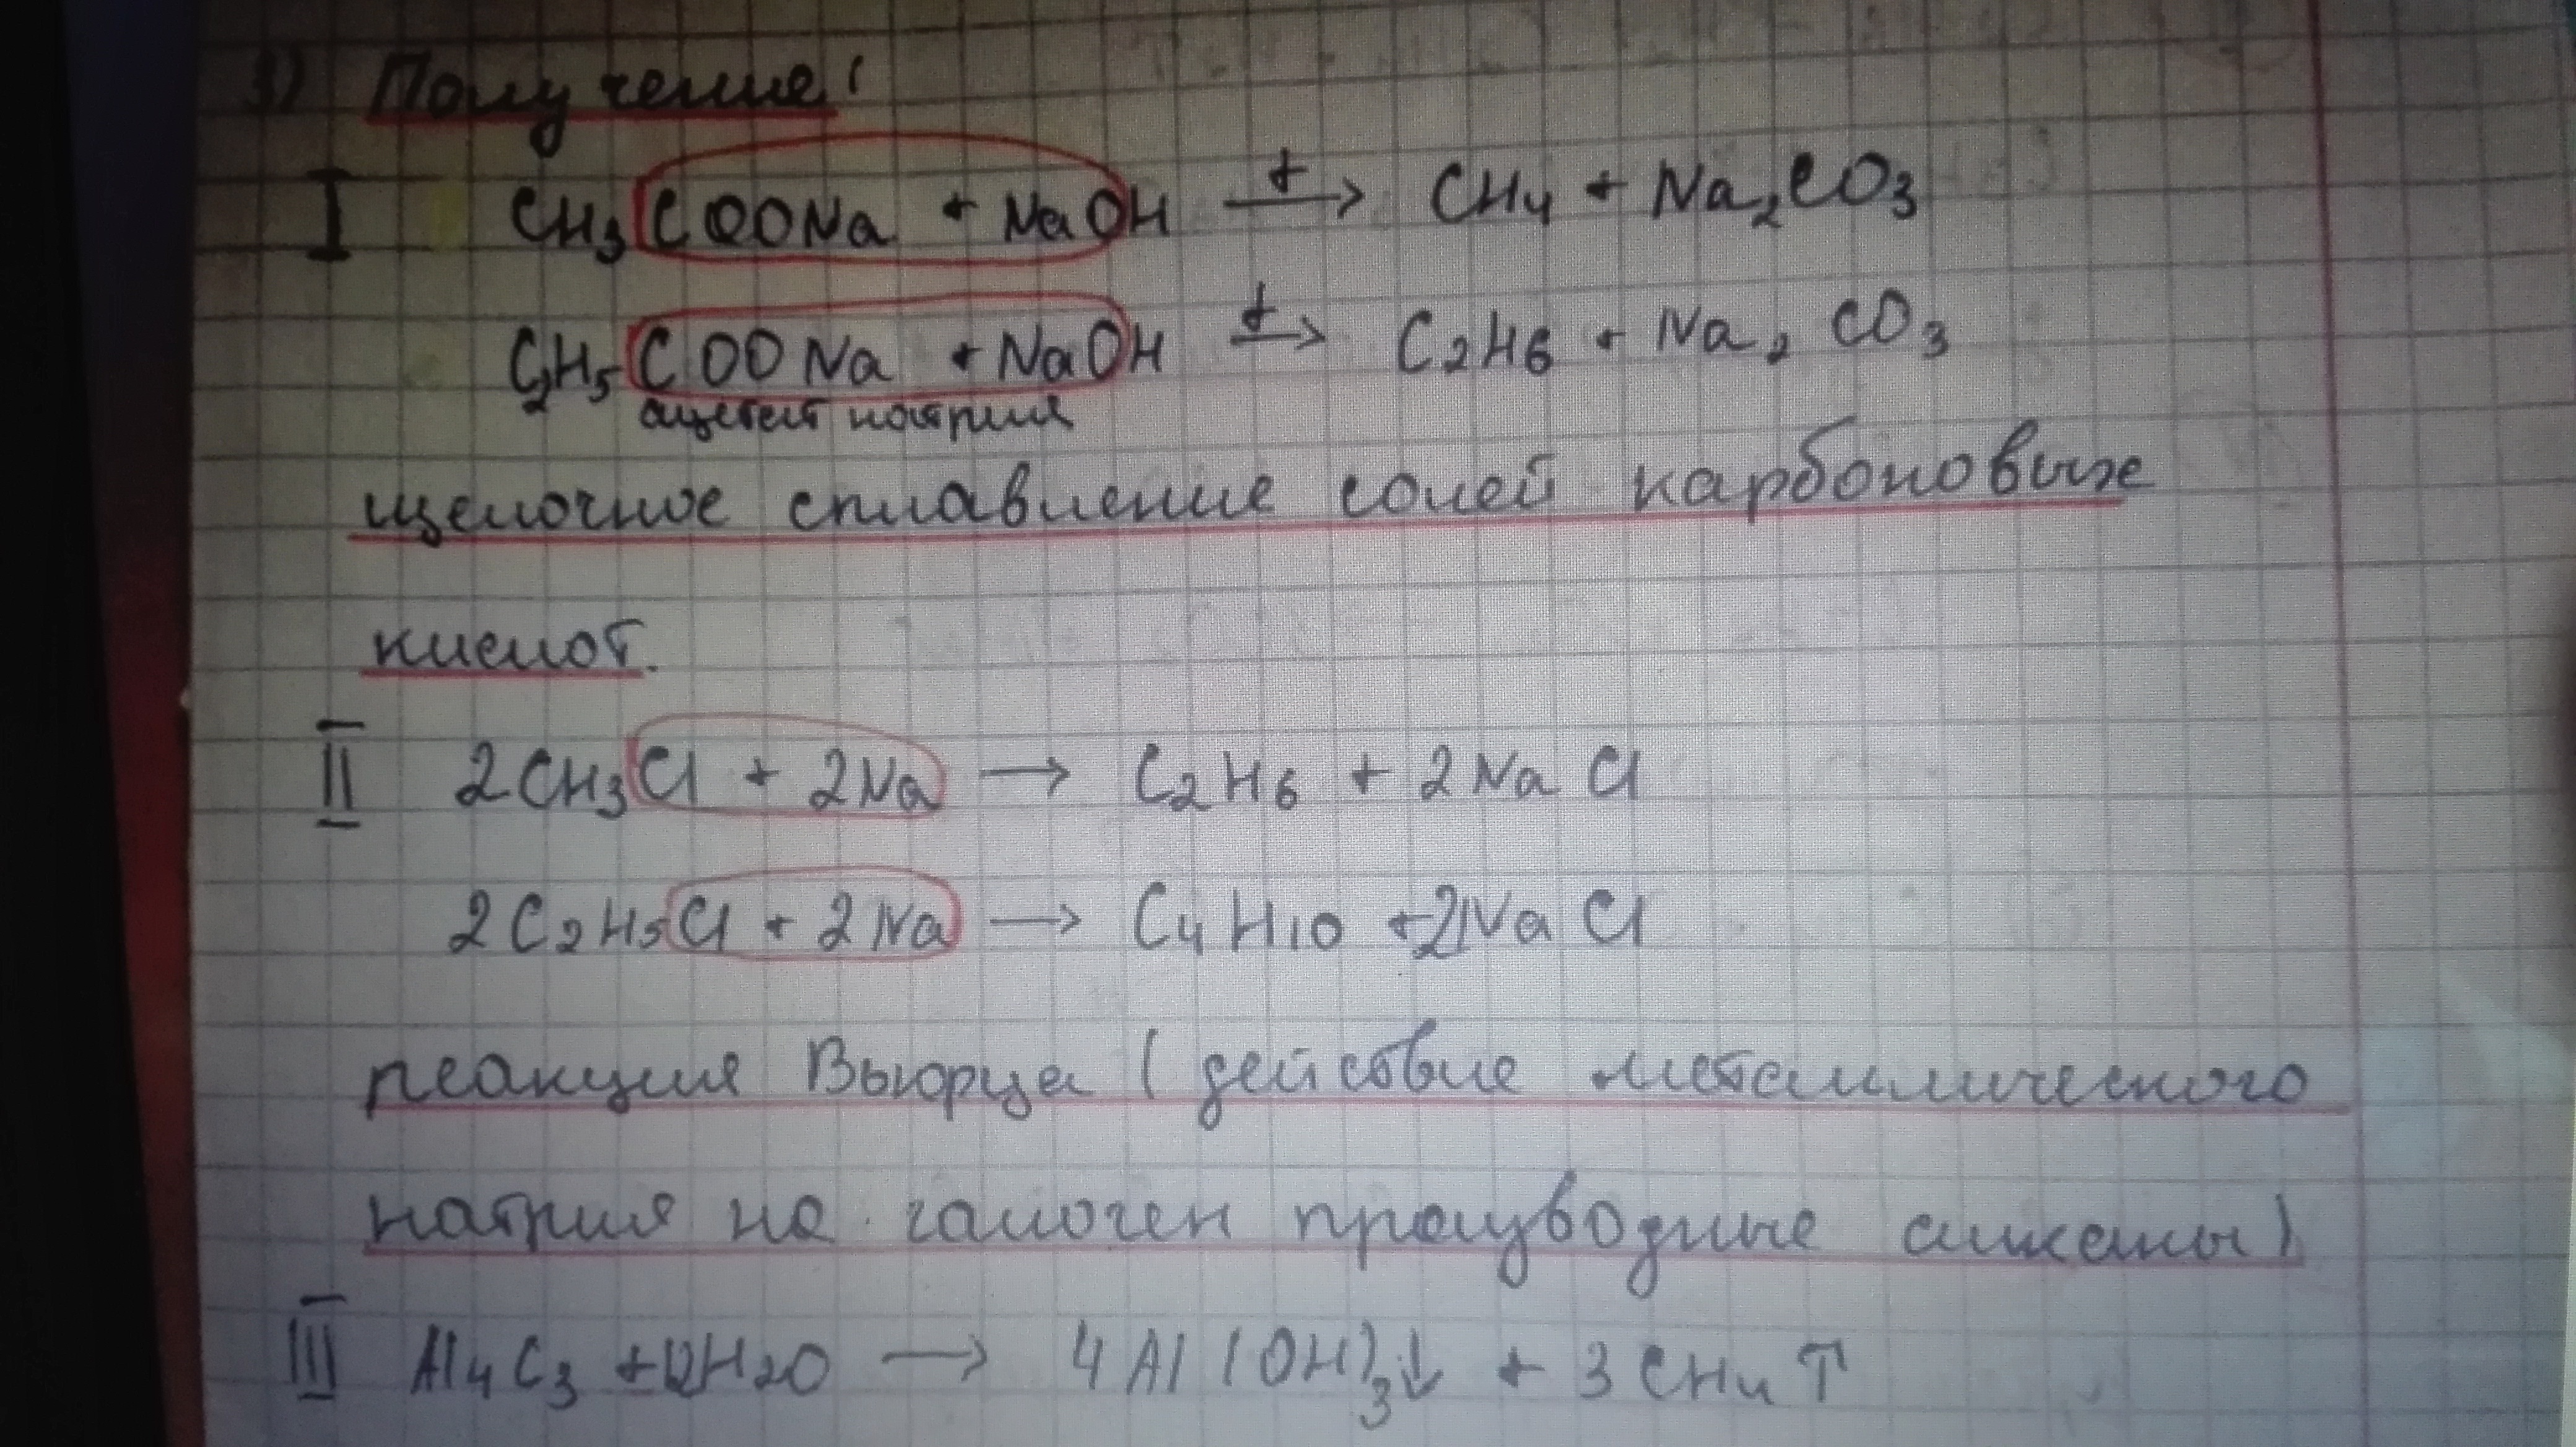 3) Получение:
I CH3COONa + NaOH t→ CH4 + Na2CO3
C2H5COONa + NaOH t→ C2H6 + Na2CO3
ацетат натрия
щелочное сплавление солей карбоновых
кислот.
II 2CH3Cl + 2Na → C2H6 + 2NaCl
2C2H5Cl + 2Na → C4H10 + 2NaCl
реакция Вьюрца (действие металлического
натрия на галоген производные алканы)
III Al4C3 + 12H2O → 4Al(OH)3↓ + 3CH4↑